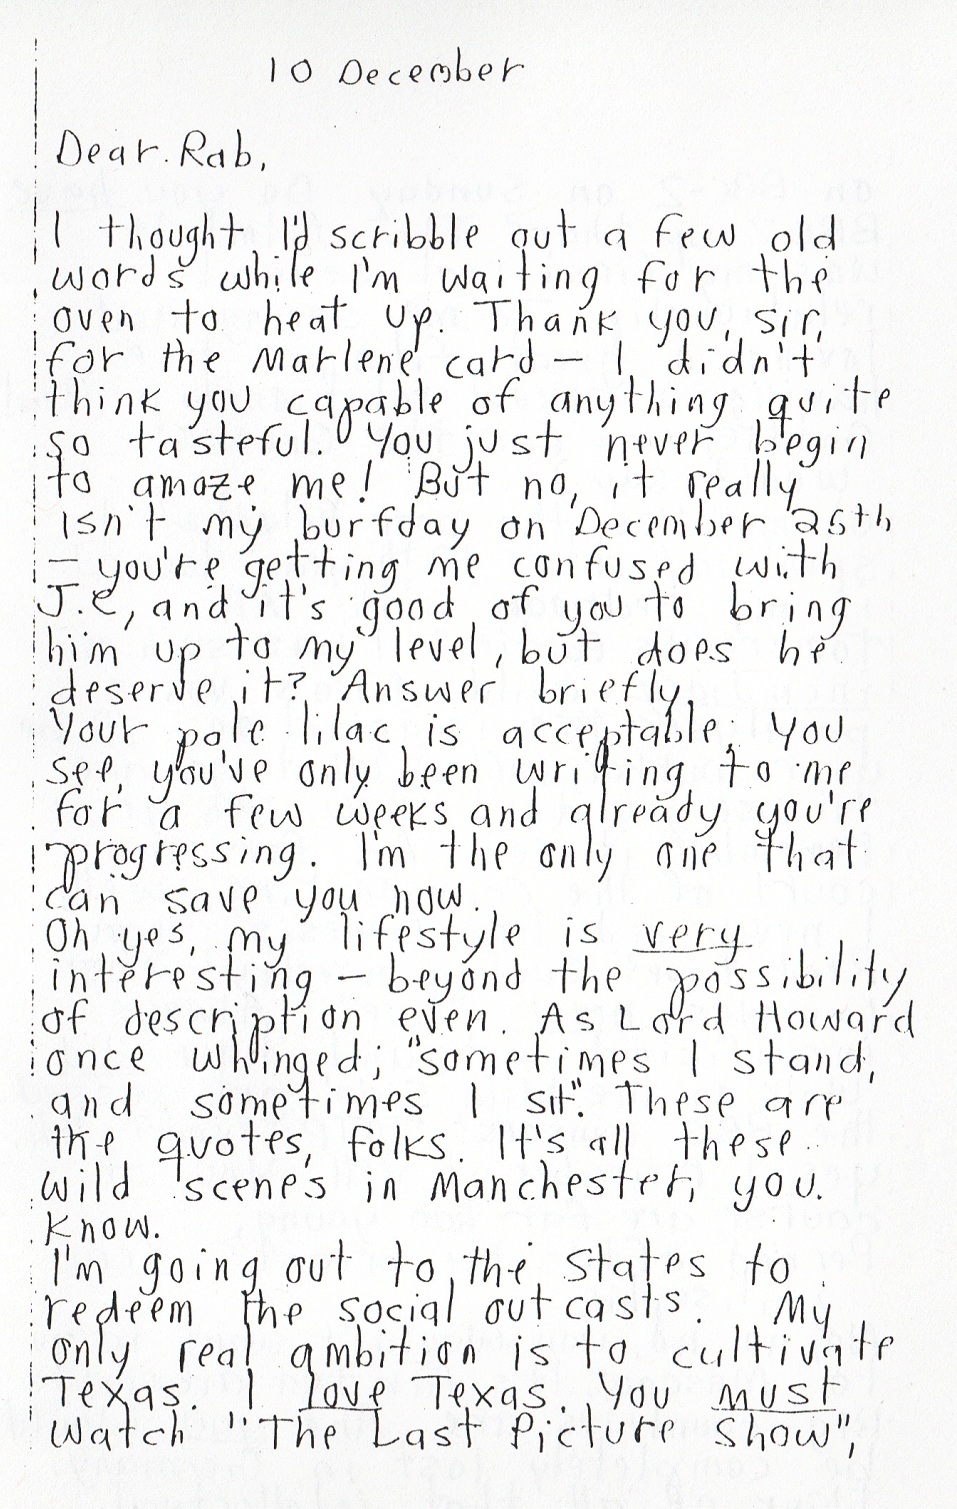 10 December
Dear Rab,
I thought I'd scribble out a few old
words while I'm waiting for the
oven to heat up. Thank you, sir,
for the Marlene card – I didn't
think you capable of anything quite
so tasteful. You just never begin
to amaze me! But no, it really
isn't my burfday on December 25th
– you're getting me confused with
J.C, and it's good of you to bring
him up to my level, but does he
deserve it? Answer briefly.
Your pale lilac is acceptable; you
see, you've only been writing to me
for a few weeks and already you're
progressing. I'm the only one that
can save you now.
Oh yes, my lifestyle is very
interesting – beyond the possibility
of description even. As Lord Howard
once whinged; "sometimes I stand,
and sometimes I sit". These are
the quotes, folks. It's all these
wild scenes in Manchester, you
know.
I'm going out to the States to
redeem the social outcasts. My
only real ambition is to cultivate
Texas. I love Texas. You must
watch "The Last Picture Show",